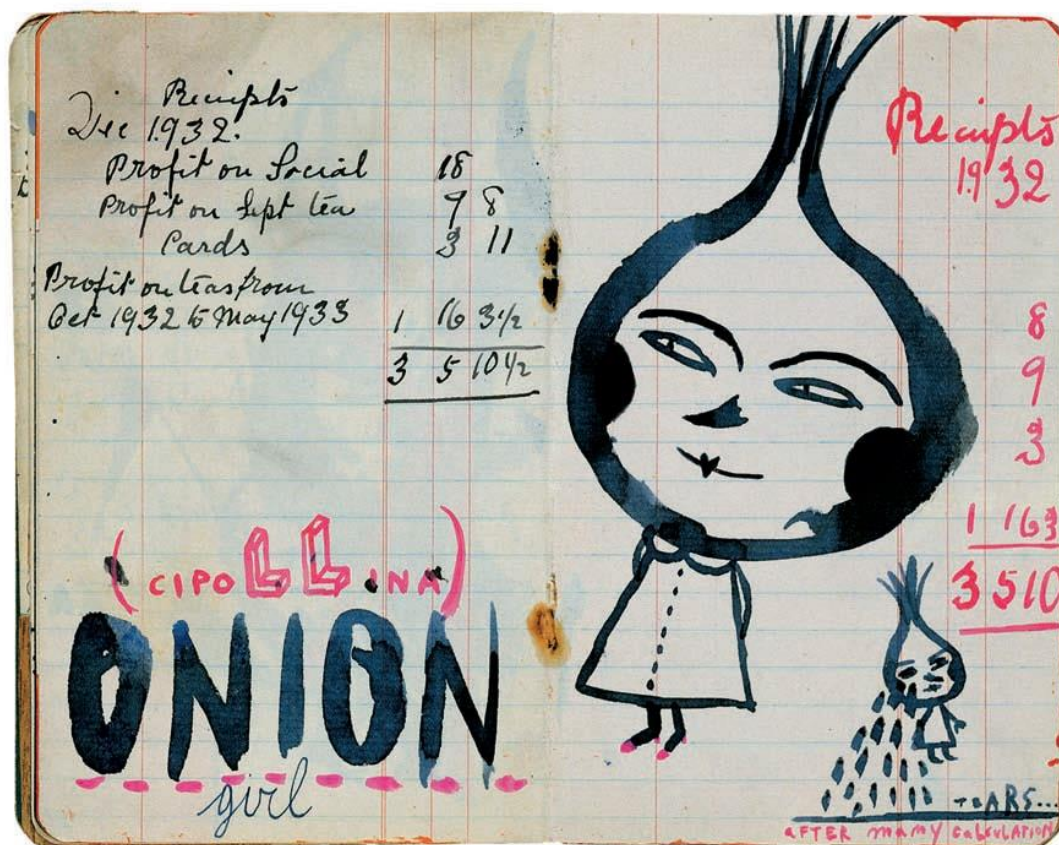 Receipts
Dec 1932.
Profit on Social 18
Profit on Sept tea 9 8
Cards 3 11
Profit on teas from
Oct 1932 to May 1933 1 16 3 1/2
3 5 10 1/2
(CIPOLLINA)
ONION
girl
Receipts
1932
8
9
3
1 16 3
3 5 10
TEARS...
AFTER mamy CALCULATION